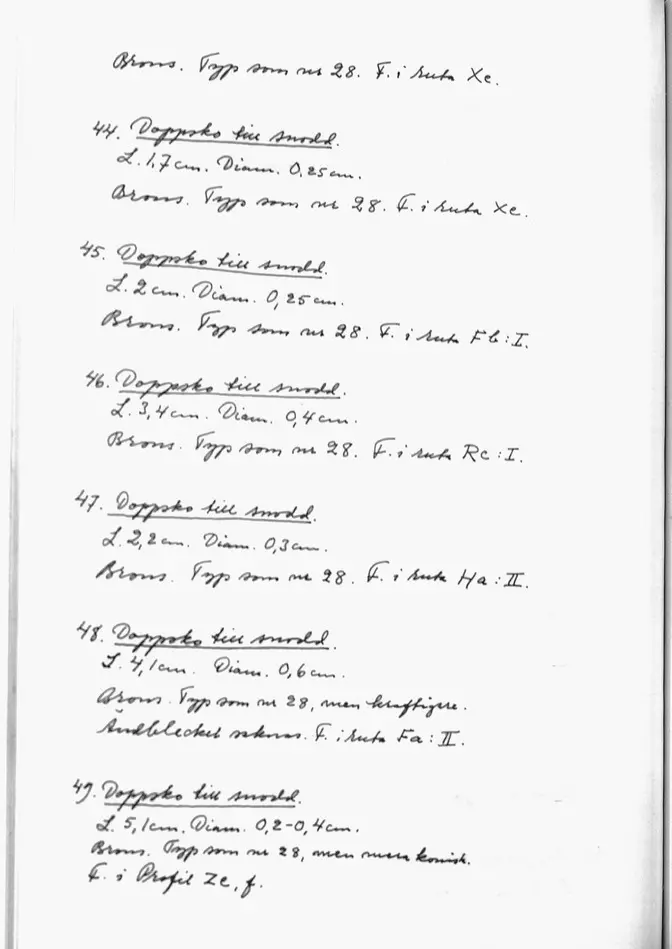 Brons. Typ som nr 28. F. i ruta Xc.
44. Doppsko till snodd.
L. 1,7 cm. Diam. 0,25 cm.
Brons. Typ som nr 28. F. i ruta Xc.
45. Doppsko till snodd.
L. 2 cm. Diam. 0,25 cm.
Brons. Typ som nr 28. F. i ruta Fb:I.
46. Doppsko till snodd.
L. 3,4 cm. Diam. 0,4 cm.
Brons. Typ som nr 28. F. i ruta Rc:I.
47. Doppsko till snodd.
L. 2,2 cm. Diam. 0,3 cm.
Brons. Typ som nr 28. F. i ruta Ha:II.
48. Doppsko till snodd.
L. 4,1 cm. Diam. 0,6 cm.
Brons. Typ som nr 28, men kraftigare.
Ändblecket saknas. F. i ruta Fa:II.
49. Doppsko till snodd.
L. 5,1 cm. Diam. 0,2-0,4 cm.
Brons. Typ som nr 28, men mera konisk.
F. i Profil Zc, f.